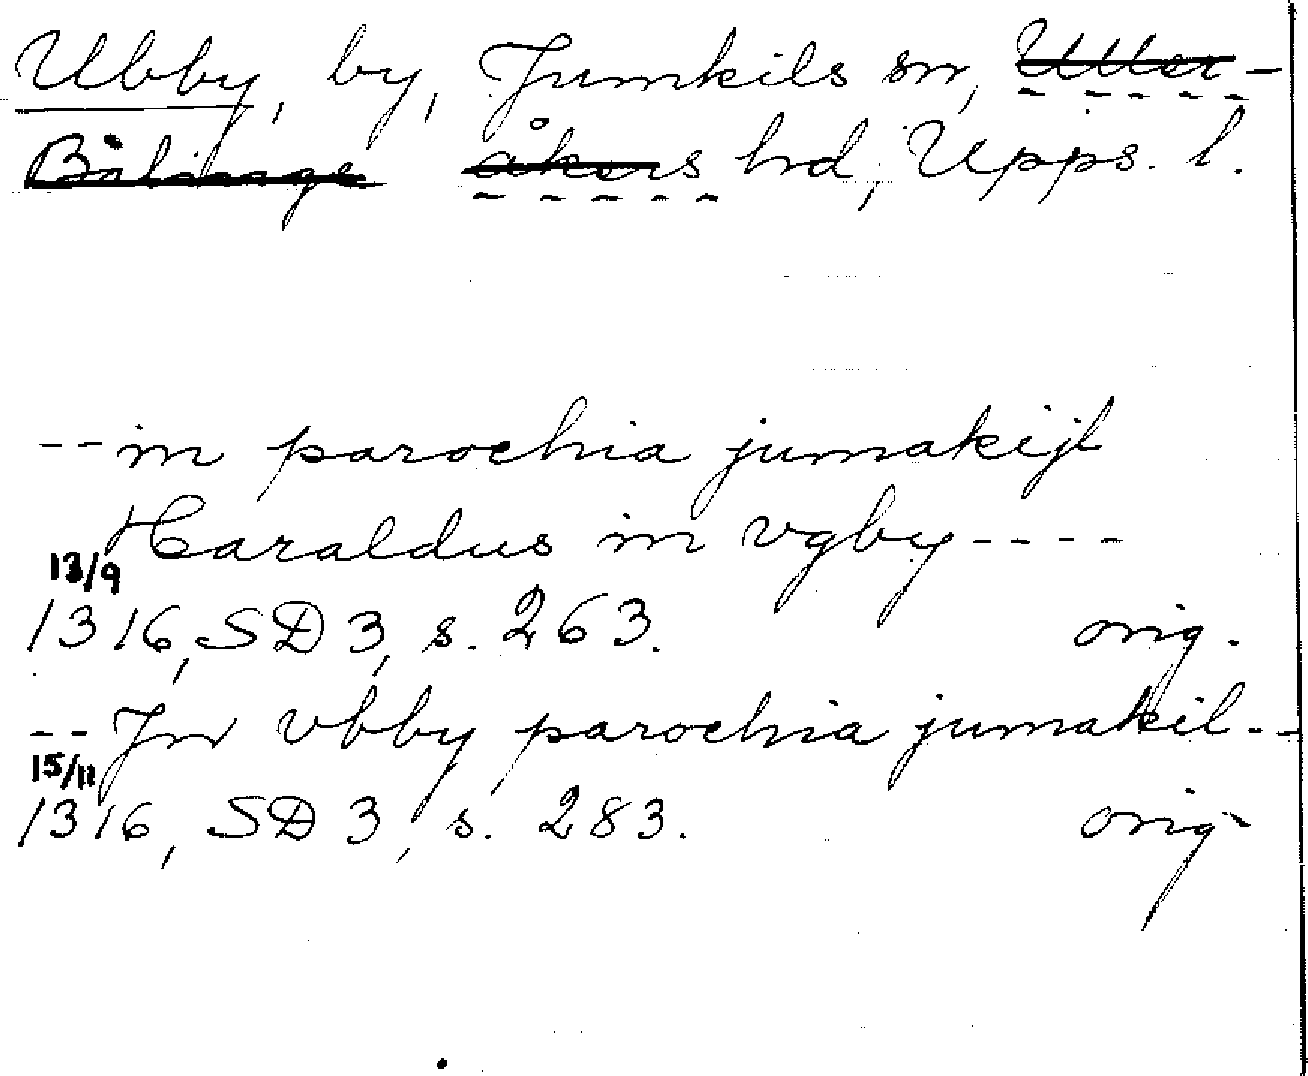 Ubby, by, Jumkils sn, Uller-
Bälinge åkers hd, Upps. l.
--in parochia jumakijl
Haraldus in vgby----
13/9
1316, SD 3, s. 263. orig.
--Jn vbby parochia jumakil--
15/11
1316, SD 3, s. 283. orig.